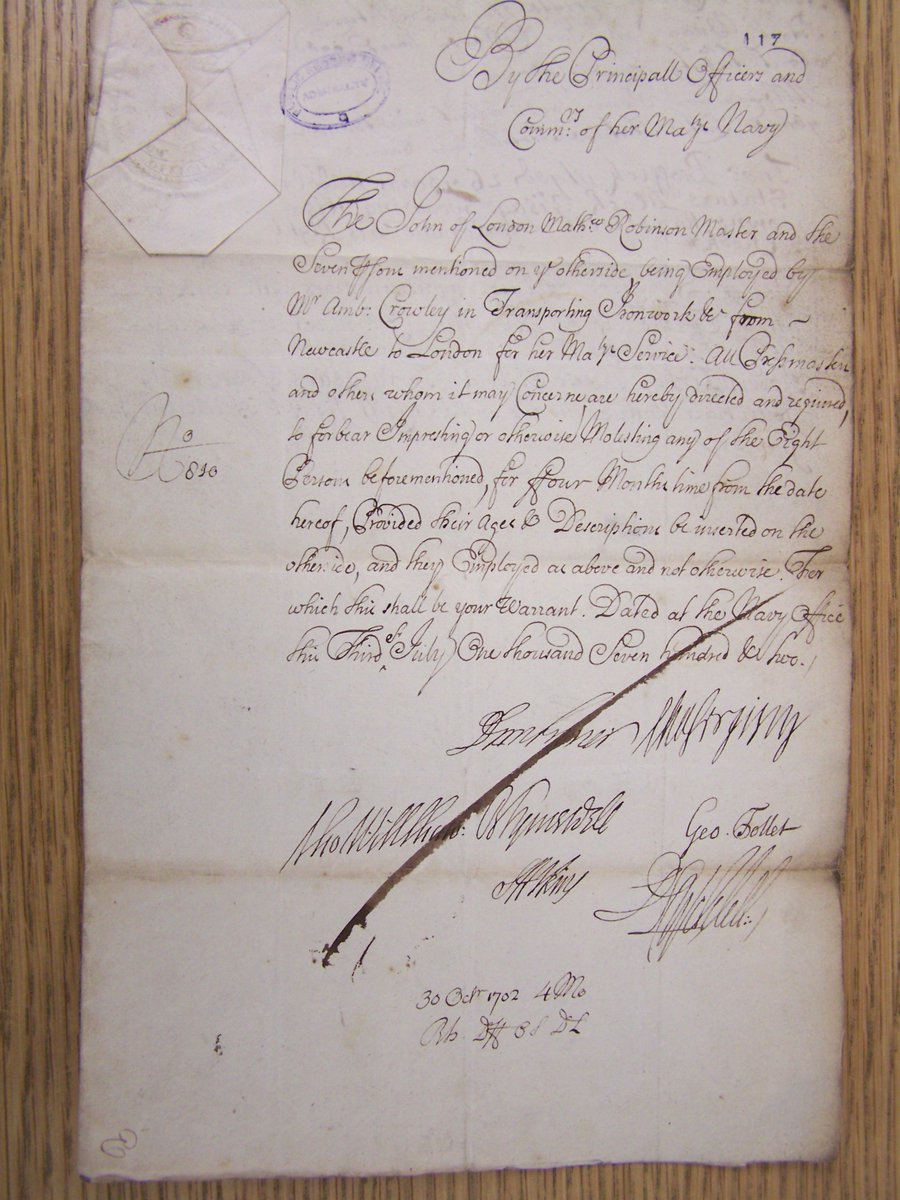 117
By the Principall Officers and
Comm.rs of her Ma.ts Navy
The John of London Math:o Robinson Master and the
Seven Psons mentioned on ye otherside, being Employed by
Mr Amb: Crowley in Transporting Ironwork &c from
Newcastle to London for her Ma.ts Service. All Presmasters
and others whom it may Concerne, are hereby directed and required,
to forbear Impresting or otherwise Molesting any of the Eight
Persons beforementioned, for ffour Months time from the date
hereof, Provided their Ages & Descriptions be inserted on the
otherside, and they Employed as above and not otherwise. For
which this shall be your Warrant. Dated at the Navy Office
this Third of July One thousand Seven hundred & two.
No 810
Tho Willshaw:
Geo. Tollet
30 Octr 1702 4 Mo